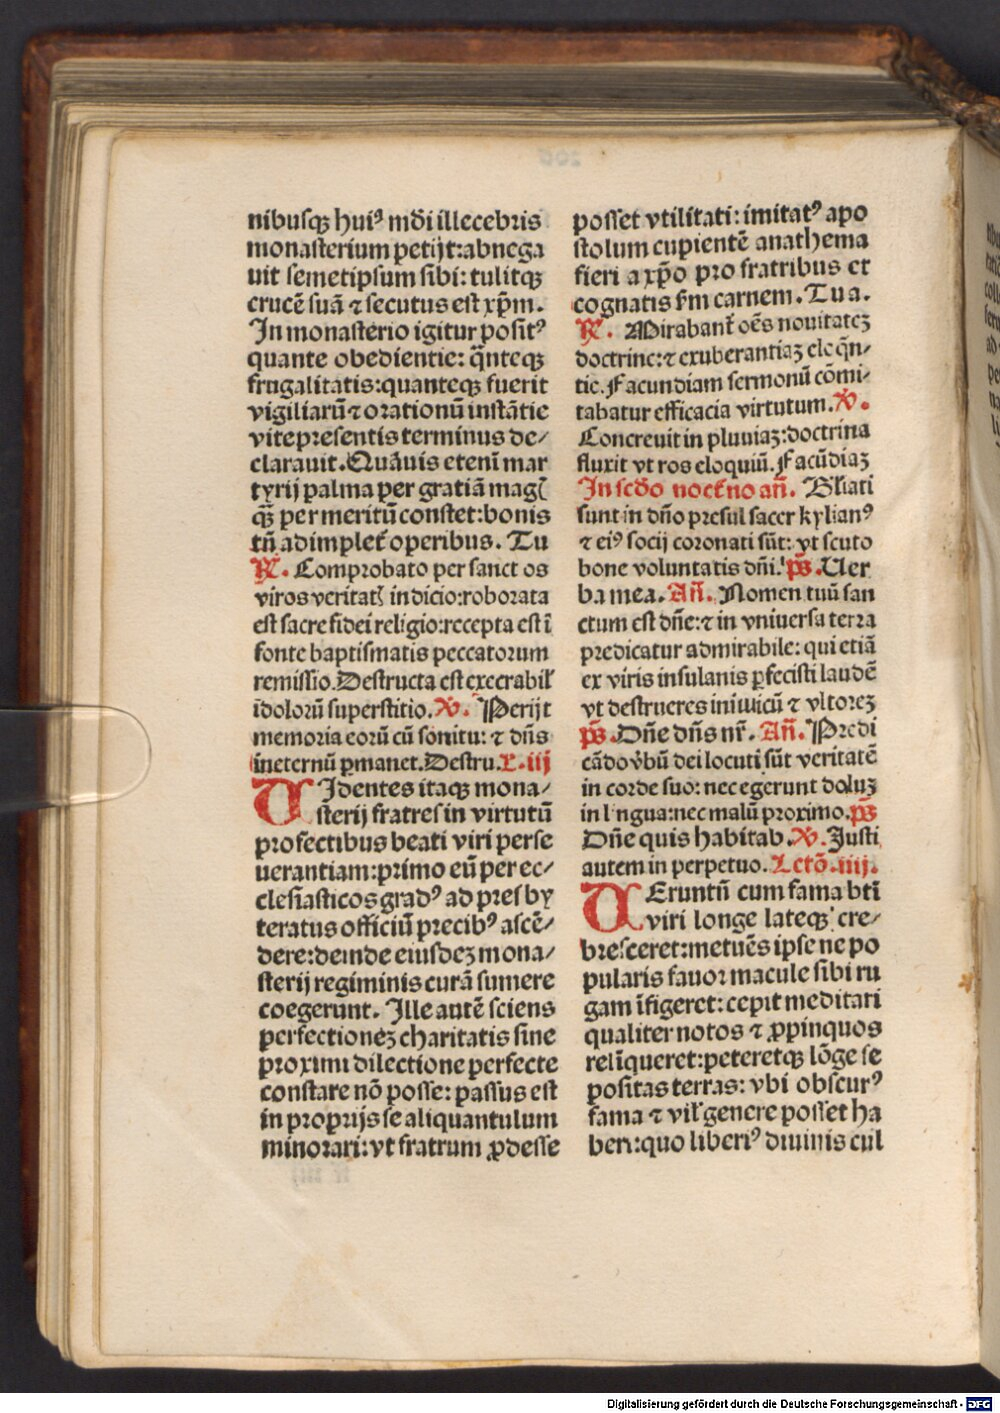 nibusqꝫ huiꝰ mūdi illecebris
monasterium petijt:abnega
uit semetipsum sibi: tulitqꝫ
crucē suā ⁊ secutus est xp̄m.
In monasterio igitur positꝰ
quante obedientie: q̄nteqꝫ
frugalitatis:quanteqꝫ fuerit
vigiliarū ⁊ orationū instātie
vite presentis terminus de⸗
clarauit. Quāuis etenī mar
tyrij palma per gratiā mag̃
qꝫ̄ per meritū constet:bonis
tn̄ adimplet̄ operibus. Tu
R̸. Comprobato per sanctos
viros veritatꝭ indicio:roborata
est sacre fidei religio:recepta est ī
fonte baptismatis peccatorum
remissio. Destructa est execrabil'
idolorū superstitio. V̸. Perijt
memoria eorū cū sonitu: ⁊ dn̄s
in eternū ꝑmanet. Destru. L. iij
VIdentes itaqꝫ mona⸗
sterij fratres in virtutū
profectibus beati viri perse
uerantiam:primo eū per ec⸗
clesiasticos gradꝰ ad presby
teratus officiū precibꝰ ascē⸗
dere:deinde eiusdeꝫ mona⸗
sterij regiminis curā sumere
coegerunt. Ille autē sciens
perfectioneꝫ charitatis sine
proximi dilectione perfecte
constare nō posse: passus est
in proprijs se aliquantulum
minorari: vt fratrum ꝓdesse
posset vtilitati: imitatꝰ apo
stolum cupientē anathema
fieri a xp̄o pro fratribus et
cognatis sm̄ carnem. Tu a.
R̸. Mirabant̄ oēs nouitateꝫ
doctrine:⁊ exuberantiaꝫ eloq̄n⸗
tie. Facundiam sermonū cōmi⸗
tabatur efficacia virtutum. V̸.
Concreuit in pluuiaꝫ:doctrina
fluxit vt ros eloquiū. Facūdiaꝫ
In scd̄o noct̄no an̄. Bt̄iati
sunt in dn̄o presul sacer kylianꝰ
⁊ eiꝰ socij coronati sūt: vt scuto
bone voluntatis dn̄i. ps̄. Uer
ba mea. An̄. Nomen tuū san
ctum est dn̄e:⁊ in vniuersa terra
predicatur admirabile: qui etiā
ex viris insulanis ꝑfecisti laudē
vt destrueres inimicū ⁊ vltoreꝫ
ps̄. Dn̄e dn̄s nr̄. An̄. Predi
cādo v̄bū dei locuti sūt veritatē
in corde suo: nec egerunt doluꝫ
in lingua:nec malū proximo. ps̄
Dn̄e quis habitab. V̸. Justi
autem in perpetuo. Lctō. iiij.
VEruntn̄ cum fama bt̄i
viri longe lateqꝫ cre⸗
bresceret:metuēs ipse ne po
pularis fauor macule sibi ru
gam īfigeret: cepit meditari
qualiter notos ⁊ ꝓpinquos
relīqueret:peteretqꝫ lōge se
positas terras: vbi obscurꝰ
fama ⁊ vil' genere posset ha
beri:quo liberiꝰ diuinis cul
Digitalisierung gefördert durch die Deutsche Forschungsgemeinschaft - DFG